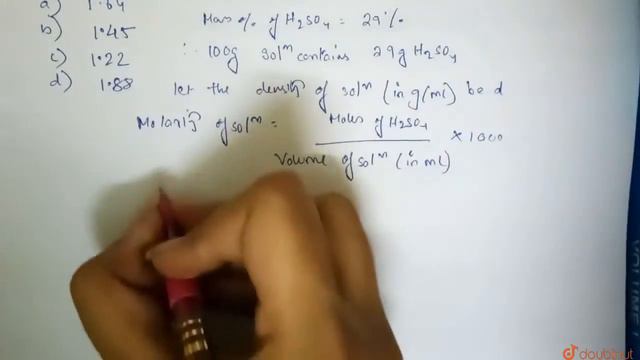 a) 1.64
b) 1.45
c) 1.22
d) 1.88
Mass % of H2SO4 = 29%.
∴ 100g solⁿ contains 29g H2SO4
let the density of solⁿ (in g/ml) be d
Molarity of solⁿ = Moles of H2SO4 × 1000
Volume of solⁿ (in ml)
doubtnut